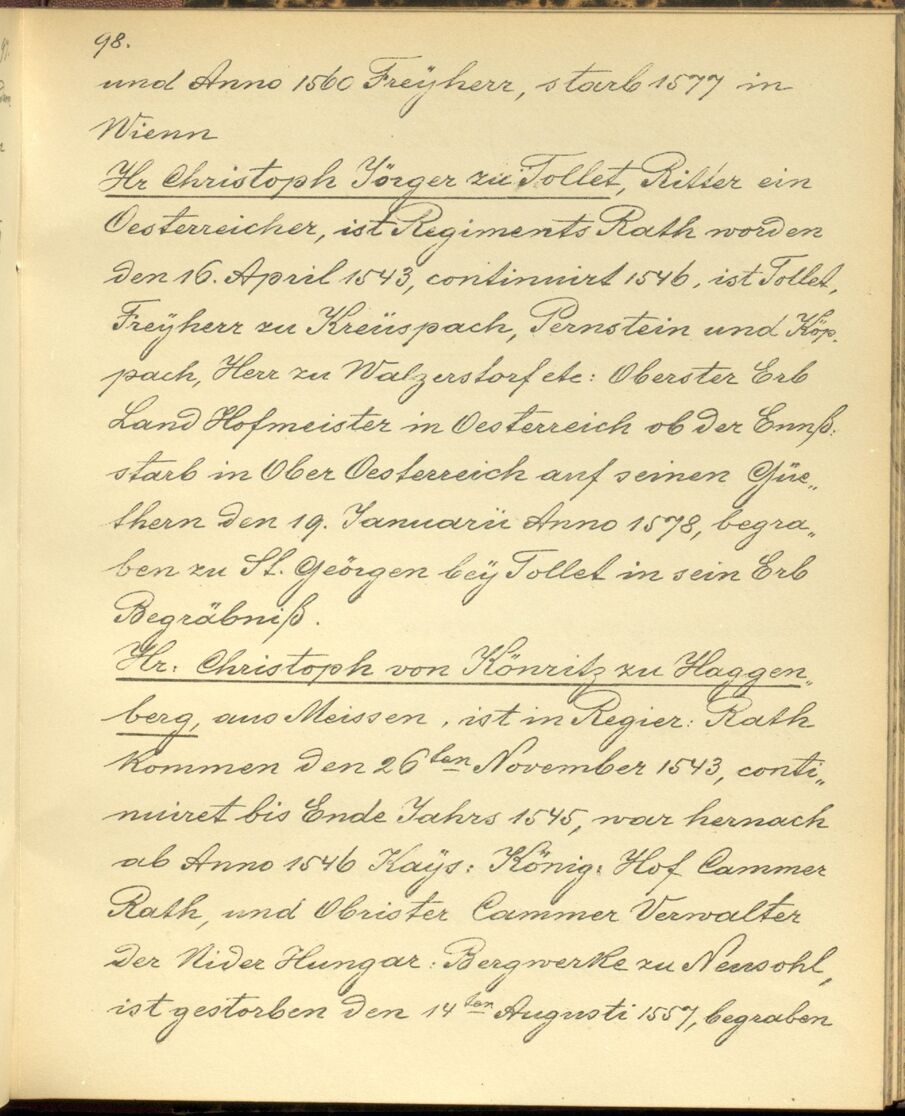 98.
und Anno 1560 Freÿherr, starb 1577 in
Wienn
Hr Christoph Jörger zu Tollet, Ritter ein
Oesterreicher, ist Regiments Rath worden
den 16. April 1543, continuirt 1546, ist Tollet,
Freÿherr zu Kreüspach, Pernstein und Köp.
pach, Herr zu Walzerstorf etc: Oberster Erb
Land Hofmeister in Oesterreich ob der Ennß:
starb in Ober Oesterreich auf seinen Güe„
thern den 19. Januarii Anno 1578, begra„
ben zu St. Geörgen beÿ Tollet in sein Erb
Begräbniß.
Hr: Christoph von Könritz zu Haggen„
berg, aus Meissen, ist in Regier: Rath
kommen den 26ten November 1543, conti„
nuiret bis Ende Jahrs 1545, war hernach
ab Anno 1546 Kaÿs: König: Hof Cammer
Rath, und Obrister Cammer Verwalter
der Nider Hungar: Bergwerke zu Neusohl,
ist gestorben den 14ten Augusti 1557, begraben